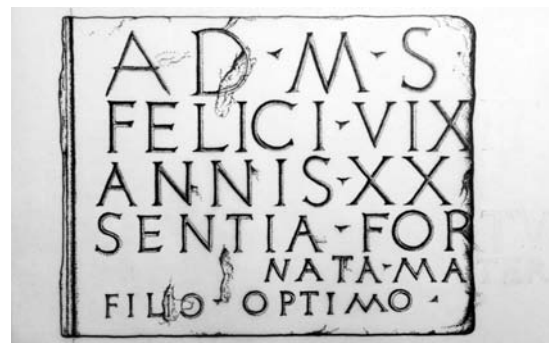 A D·M·S
FELICI·VIX
ANNIS·XX
SENTIA·FOR
NATA·MA
FILIO·OPTIMO·